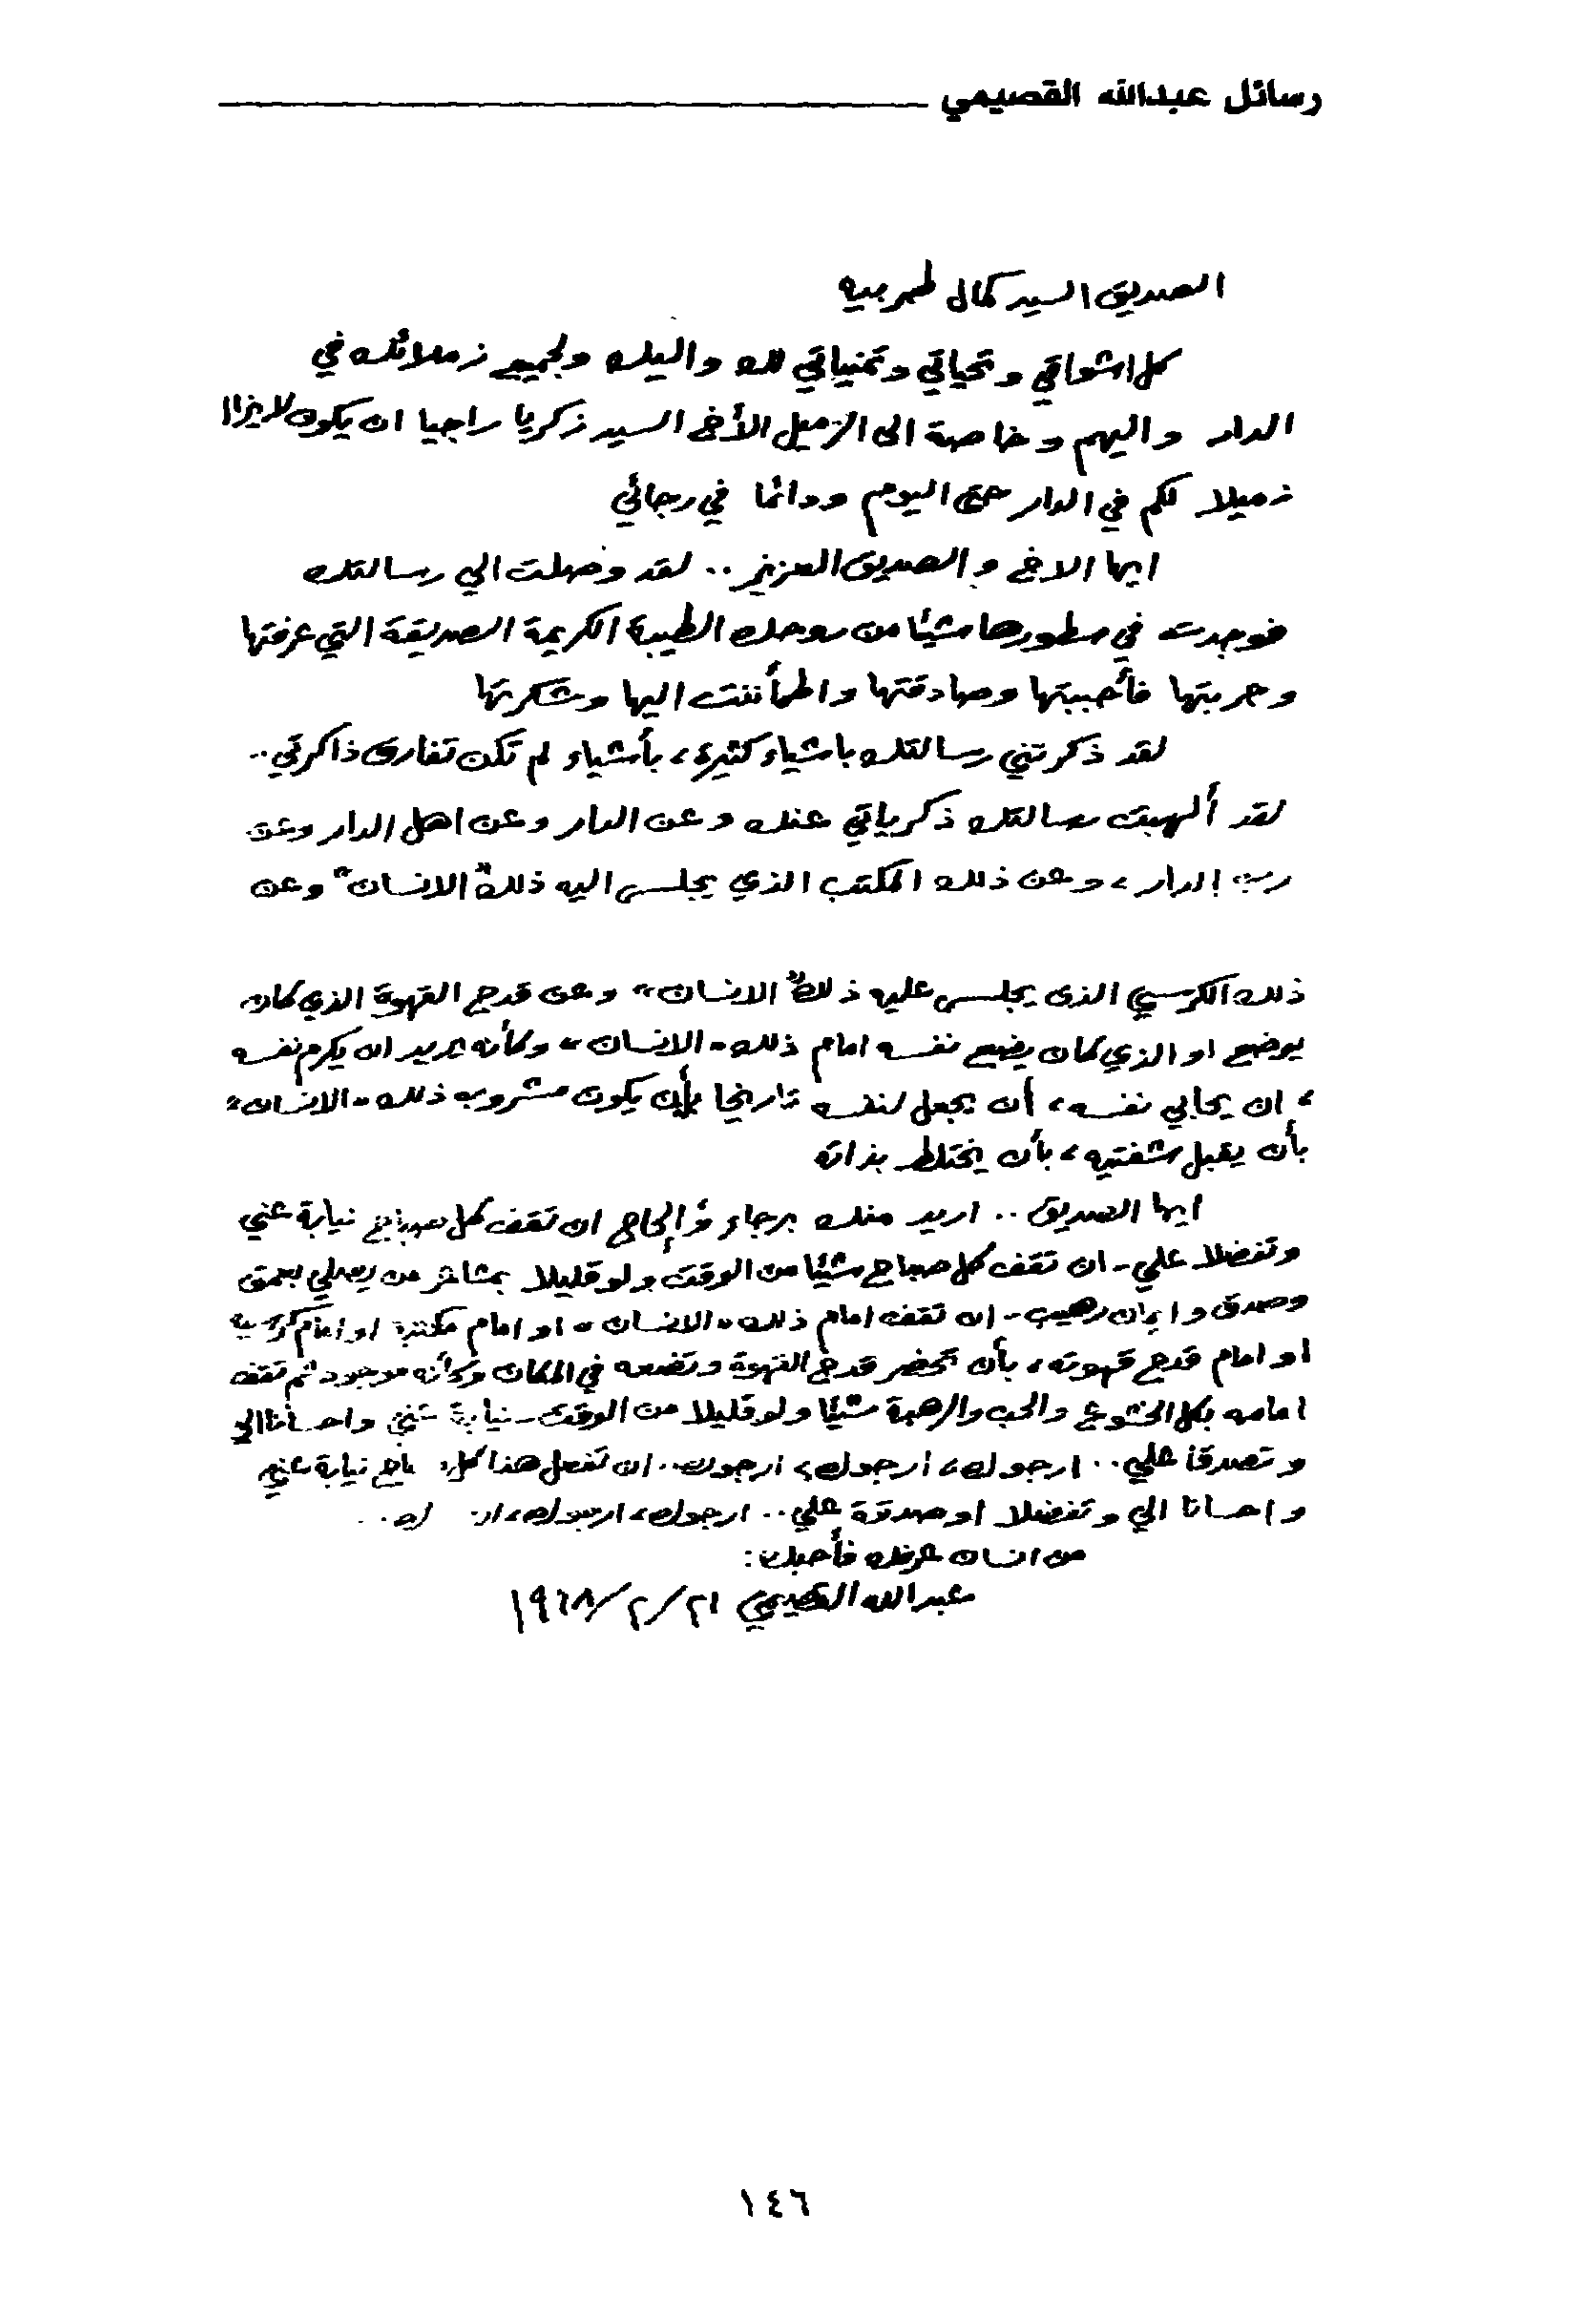 رسائل عبدالله القصيمي
الصديق السيد كمال طهربيه
كل اشواقي وتحياتي وتمنياتي لك واليك ولجميع زملائك في
الدار واليهم وخاصة الى الزميل الأخ السيد زكريا راجيا ان يكون لايزال
زميلا لكم في الدار حتى اليوم ودائما في رجائي
ايها الاخ والصديق العزيز .. لقد وصلت الي رسالتك
فوجدت في سطورها شيئا من روحك الطيبة الكريمة الصديقة التي عرفتها
وجربتها فأحببتها وصادقتها واطمأننت اليها وشكرتها
لقد ذكرتني رسالتك باشياء كثيرة، بأشياء لم تكن تفارق ذاكرتي..
لقد ألهبت رسالتك ذكرياتي عنك وعن الدار وعن اهل الدار وعن
رب الدار، وعن ذلك المكتب الذي يجلس اليه ذلك "الانسان" وعن
ذلك الكرسي الذى يجلس عليه ذلك "الانسان" وعن قدح القهوة الذي كان
يوضع او الذي كان يضع نفسه امام ذلك "الانسان" وكأنه يريد ان يكرم نفسه
، ان يحابي نفسه، أن يجعل لنفسه تاريخا بأن يكون مشروب ذلك "الانسان"
بأن يقبل شفتيه، بأن يختلط بذاته
ايها الصديق .. اريد منك برجاء وإلحاح ان تقف كل صباح نيابة عني
وتفضلا علي - ان تقف كل صباح شيئا من الوقت ولو قليلا بمشاعر من يصلي بعمق
وصدق وايمان رهيب - ان تقف امام ذلك "الانسان" او امام مكتبه او امام كرسيه
او امام قدح قهوته، بأن تحضر قدح القهوة وتضعه في المكان وكأنه موجود ثم تقف
امامه بكل الخشوع والحب والرهبة شيئا ولو قليلا من الوقت - نيابة عني واحسانا الي
وتصدقا علي .. ارجوك، ارجوك، ارجوك.. ان تفعل هذا كل نيابة عني
واحسانا الي وتفضلا او صدقة علي .. ارجوك، ارجوك،
من انسان عرفك فأحبك:
عبدالله القصيمي ٢١/٢/١٩٦٨
١٤٦